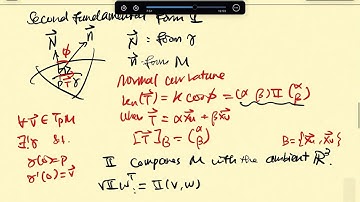 Second fundamental form II
N⃗ : from γ
n⃗ from M
N⃗ φ n⃗
p T⃗ γ
normal curvature
kₙ(T⃗) = k cosφ = (α β) II (α β)
when T⃗ = α x⃗ᵤ + β x⃗ᵥ
[T⃗]_B = (α β)
B = {x⃗ᵤ, x⃗ᵥ}
∀ v⃗ ∈ TₚM
∃ γ s.t.
γ(0) = p
γ'(0) = v⃗
II compares M with the ambient ℝ³.
v II wᵀ := II(v, w)